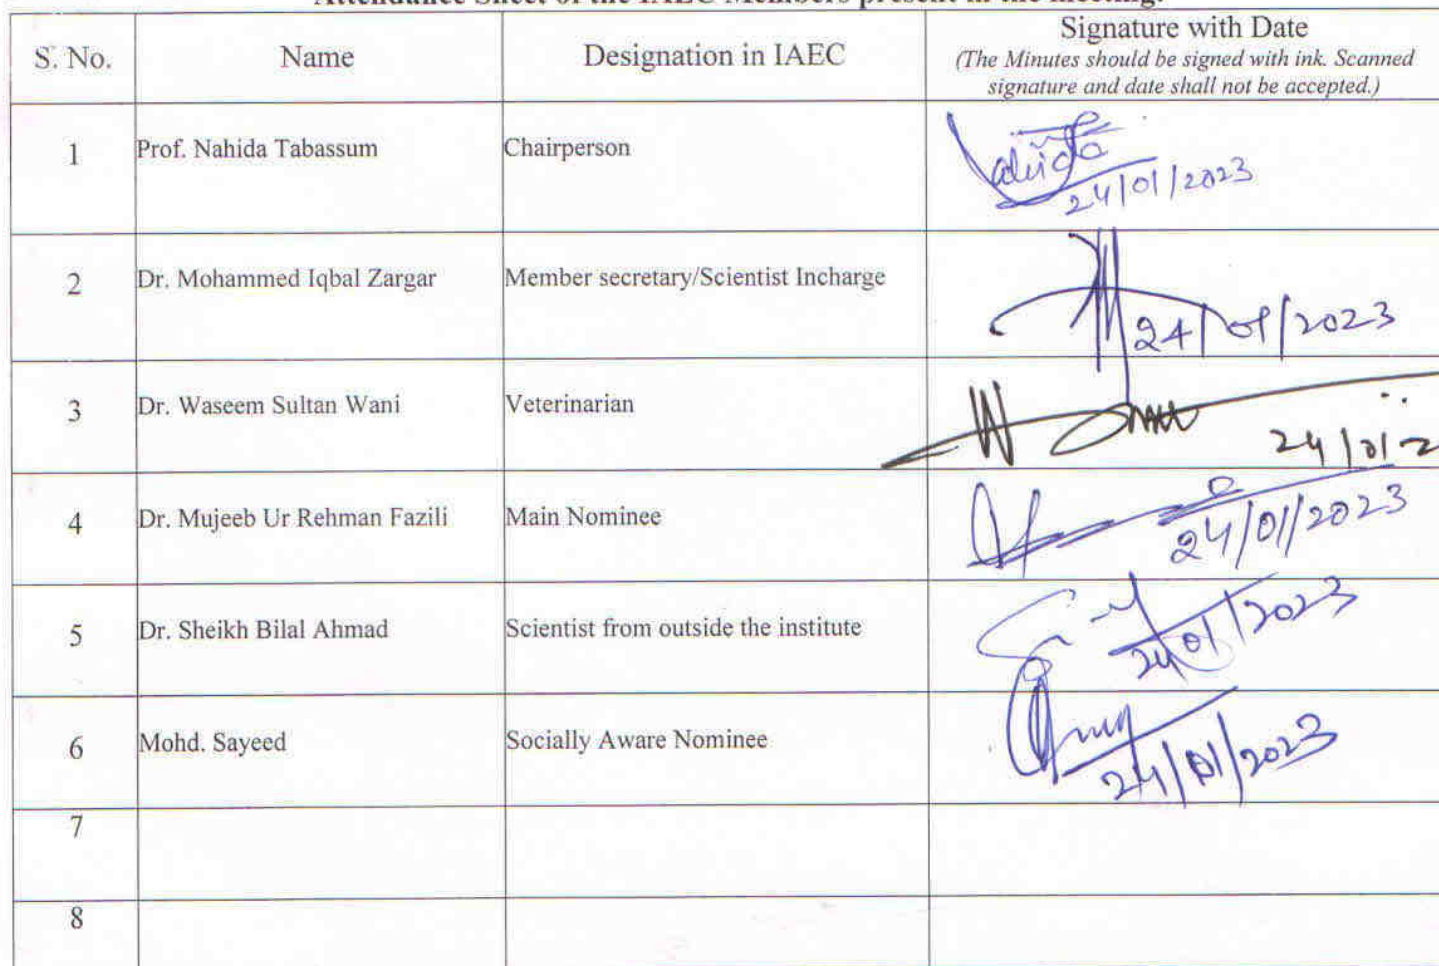 Attendance Sheet of the IAEC Members present in the meeting.
S. No. Name Designation in IAEC Signature with Date
(The Minutes should be signed with ink. Scanned
signature and date shall not be accepted.)
1 Prof. Nahida Tabassum Chairperson
24/01/2023
2 Dr. Mohammed Iqbal Zargar Member secretary/Scientist Incharge
24/01/2023
3 Dr. Waseem Sultan Wani Veterinarian
24/01/2
4 Dr. Mujeeb Ur Rehman Fazili Main Nominee
24/01/2023
5 Dr. Sheikh Bilal Ahmad Scientist from outside the institute
24/01/2023
6 Mohd. Sayeed Socially Aware Nominee
24/01/2023
7
8